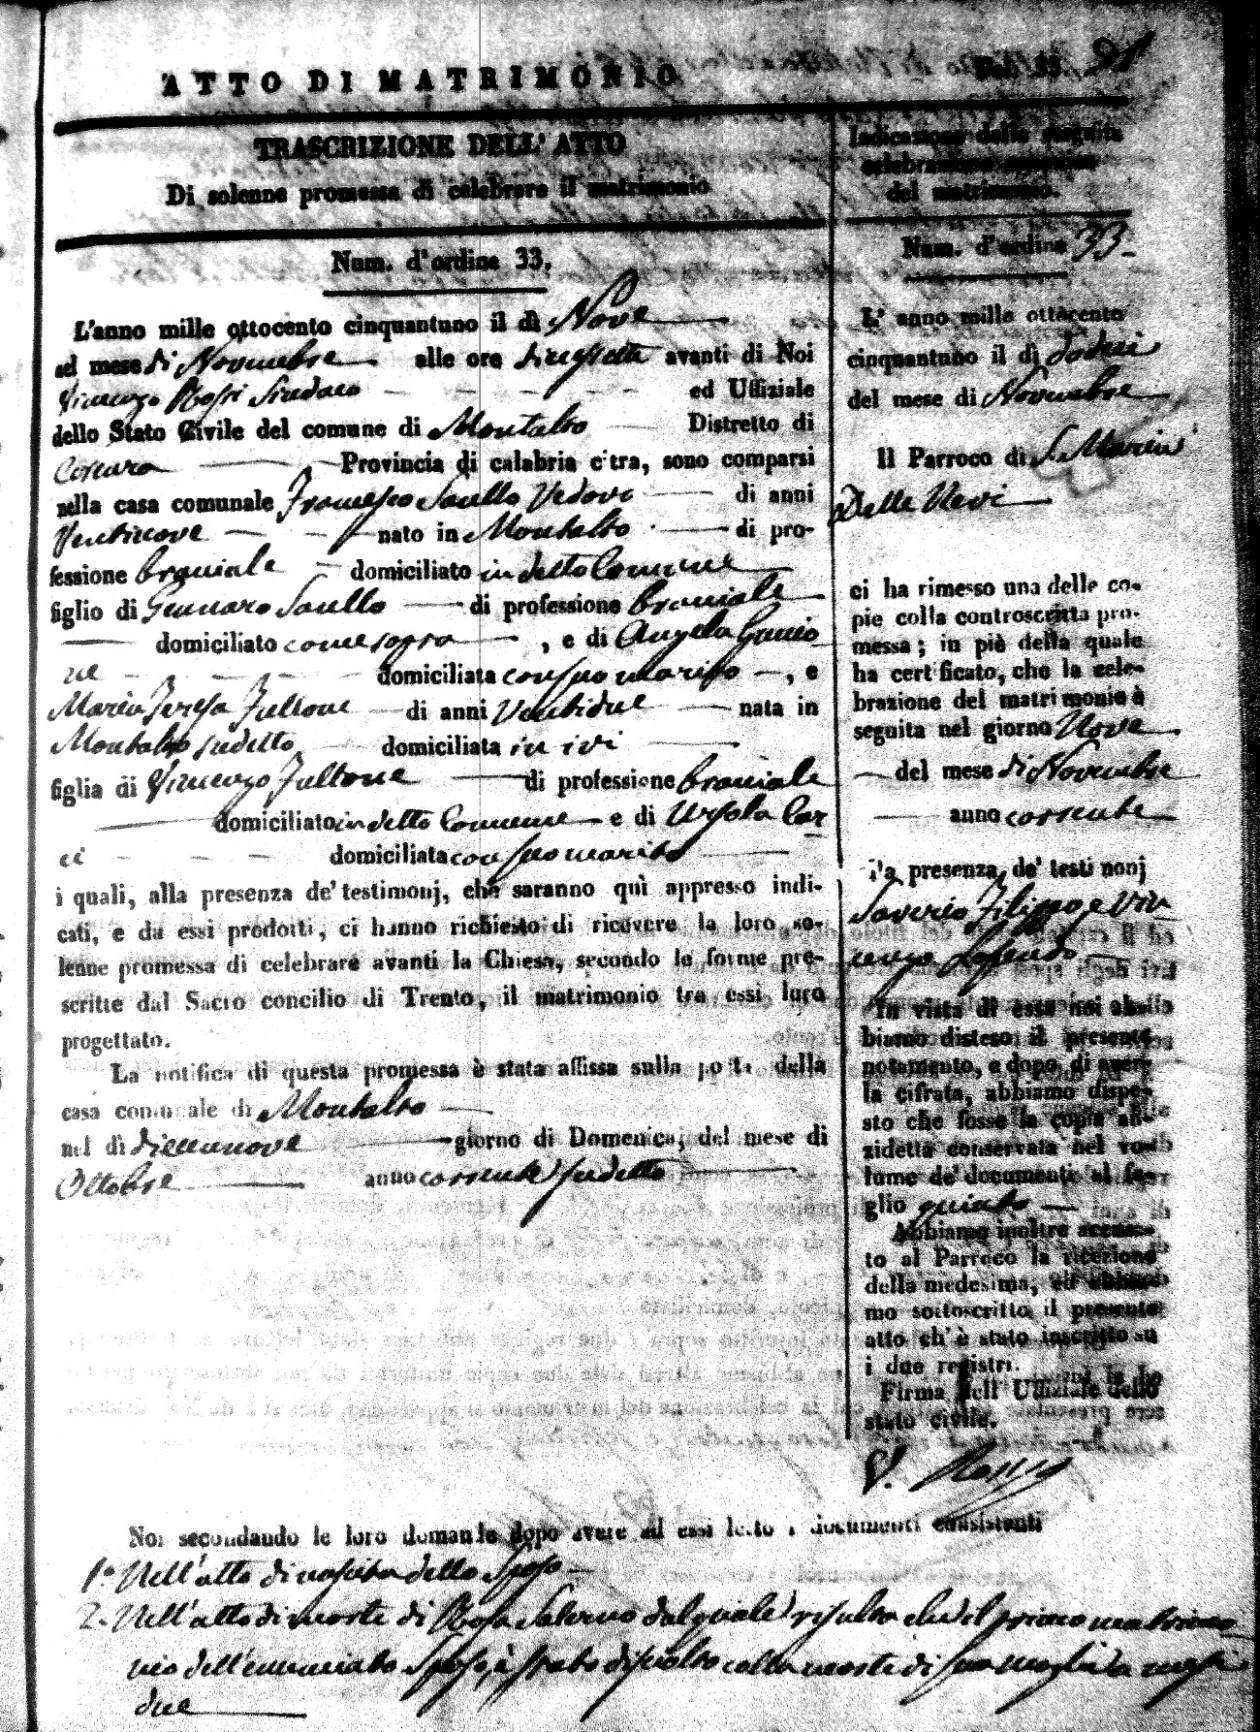 ATTO DI MATRIMONIO
91
TRASCRIZIONE DELL' ATTO
Di solenne promessa di celebrare il matrimonio
Num. d'ordine 33.
L'anno mille ottocento cinquantuno il dì Nove
del mese di Novembre alle ore diecissette avanti di Noi
Vincenzo Rossi Sindaco ed Uffiziale
dello Stato Civile del comune di Montalto Distretto di
Cosenza Provincia di calabria citra, sono comparsi
nella casa comunale Francesco Saullo Vedovo di anni
Ventinove nato in Montalto di pro-
fessione braciale domiciliato in detto Comune
figlio di Gennaro Saullo di professione braciale
domiciliato come sopra , e di Angela
ne domiciliata con suo marito , e
Maria Teresa Fullone di anni Ventidue nata in
Montalto sudetto domiciliata in ivi
figlia di Vincenzo Fullone di professione braciale
domiciliato in detto Comune e di Ursola Car
ci domiciliata con suo marito
i quali, alla presenza de' testimonj, che saranno quì appresso indi-
cati, e da essi prodotti, ci hanno richiesto di ricevere la loro so-
lenne promessa di celebrare avanti la Chiesa, secondo le forme pre-
scritte dal Sacro concilio di Trento, il matrimonio tra essi loro
progettato.
La notifica di questa promessa è stata affissa sulla porta della
casa comunale di Montalto
nel dì diecinnove giorno di Domenica, del mese di
Ottobre anno corrente sudetto
Indicazione della seguita
celebrazione
del matrimonio.
Num. d'ordine 33.
L' anno mille ottocento
cinquantuno il dì dodeci
del mese di Novembre
Il Parroco di S. Maria
Delle Nevi
ci ha rimesso una delle co-
pie colla controscritta pro-
messa; in piè della quale
ha certificato, che la cele-
brazione del matrimonio è
seguita nel giorno Nove
del mese di Novembre
anno corrente
Pa presenza de' testimonj
Saverio Filippo e Vin
cenzo
In vista di essa noi ab-
biamo disteso il presente
notamento, e dopo di aver-
la cifrata, abbiamo dispo-
sto che fosse la copia an-
zidetta conservata nel vo-
lume de' documenti al fo-
glio quinto
Abbiamo inoltre accusa-
to al Parroco la ricezione
della medesima, ed abbia-
mo sottoscritto il presente
atto ch' è stato inscritto su
i due registri.
Firma dell' Uffiziale dello
stato civile.
V. Rossi
Noi secondando le loro domande dopo avere ad essi letto i documenti consistenti
1.° Nell'atto di nascita dello Sposo
2. Nell'atto di morte di Rosa Salerno dal quale risulta che il primo matrimo
nio dell'enunciato Sposo, è stato disciolto colla morte di sua moglie a
due